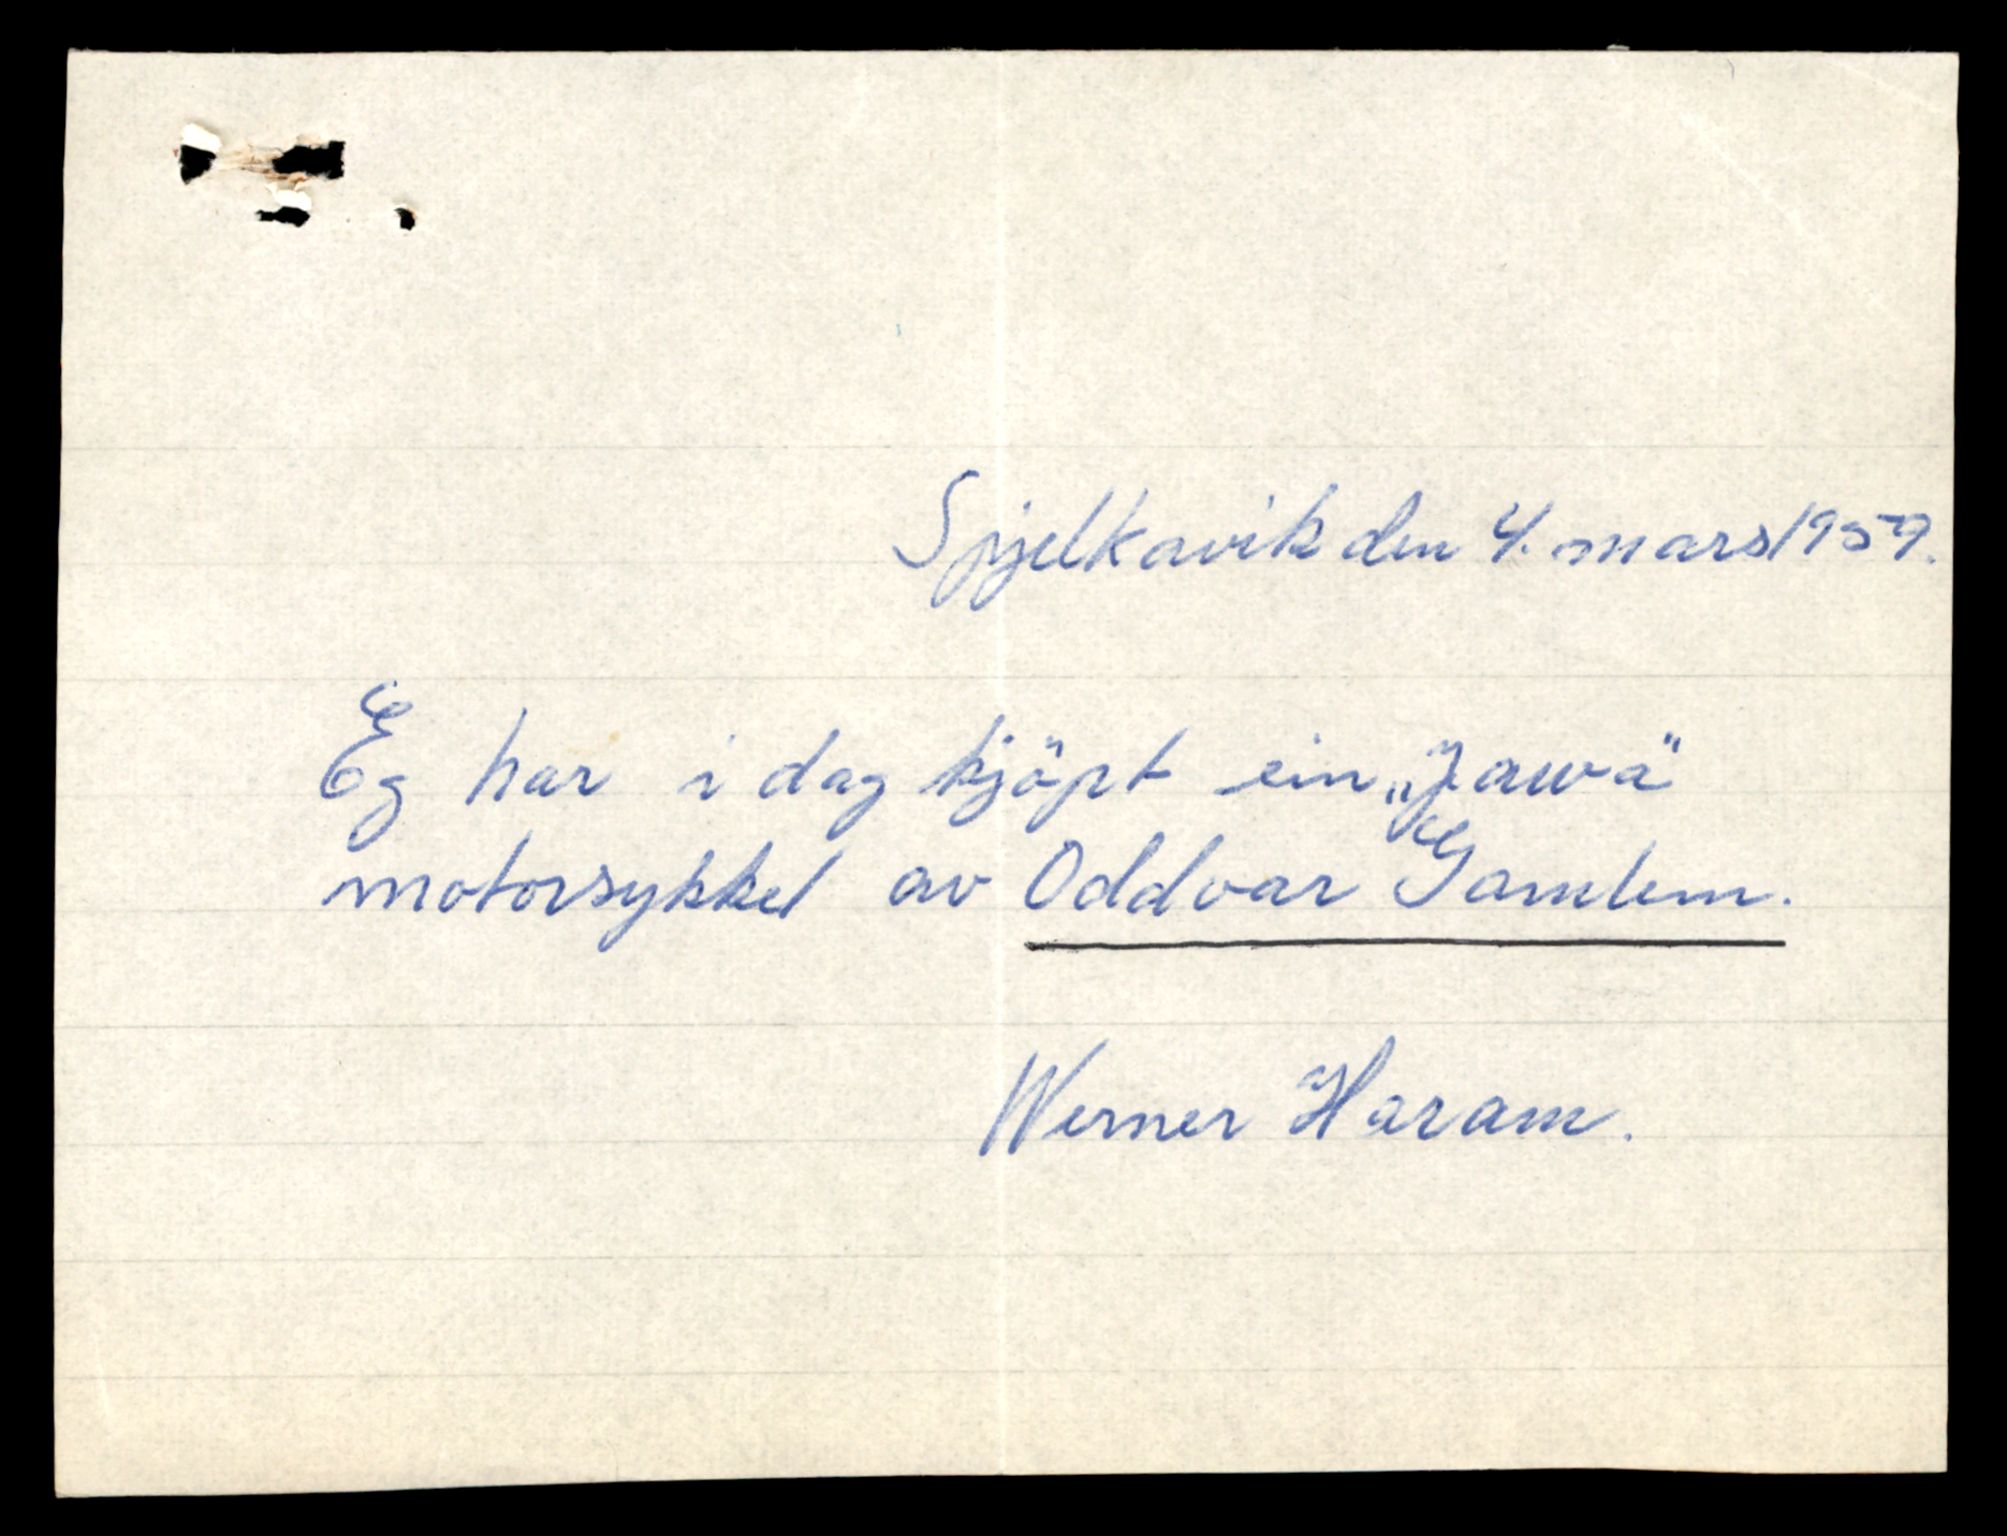 Spjelkavik den 4. mars 1959.
Eg har i dag kjöpt ein „Jawa"
motorsykkel av Oddvar Gamlem.
Werner Haram.